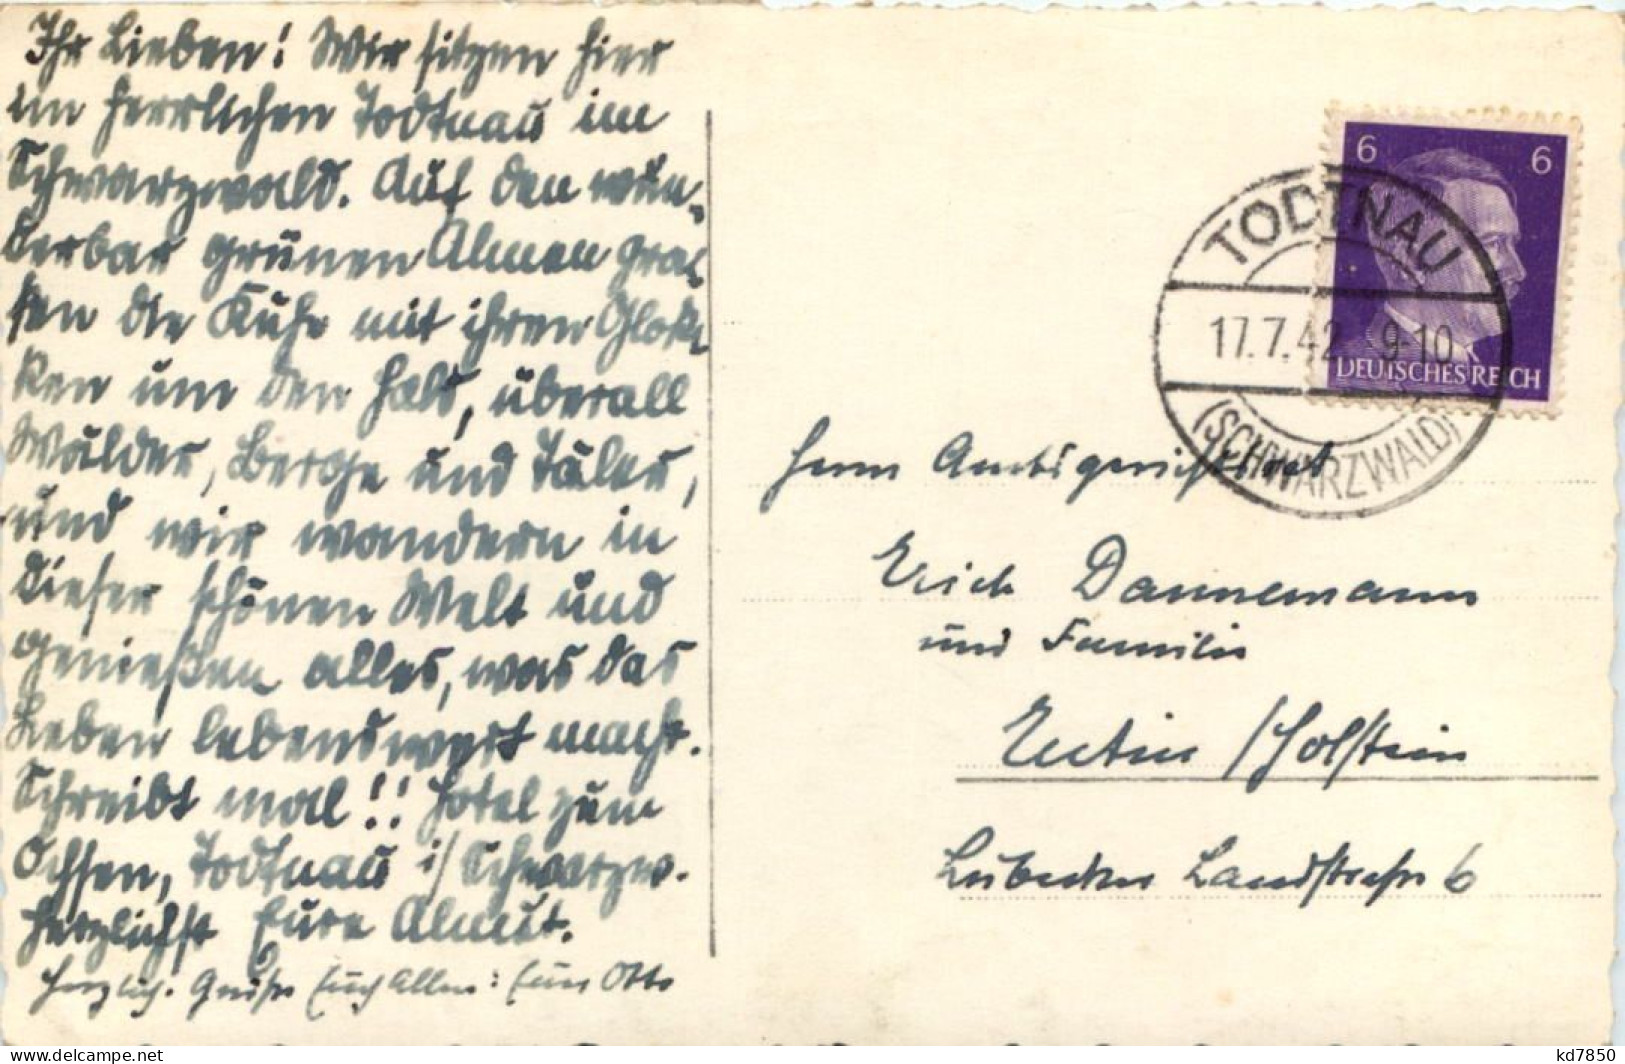 Ihr Lieben! Wir sitzen hier
im herrlichen Todtnau im
Schwarzwald. Auf den wun-
derbar grünen Almen gra-
sen die Kühe mit ihren Glok-
ken um den Hals, überall
Wälder, Berge und Täler,
und wir wandern in
dieser schönen Welt und
genießen alles, was das
Leben lebenswert macht.
Schreibt mal!! Hotel zum
Ochsen, Todtnau i/Schwarzw.
Herzlichst Eure Almut.
Herzlich. Grüße Euch Allen: Euer Otto
6 6
DEUTSCHES REICH
TODTNAU
17.7.42 9-10
(SCHWARZWALD)
Herrn Amtsgerichtsrat
Erich Dannemann
und Familie
Eutin /Holstein
Lübecker Landstraße 6
www.delcampe.net
kd7850